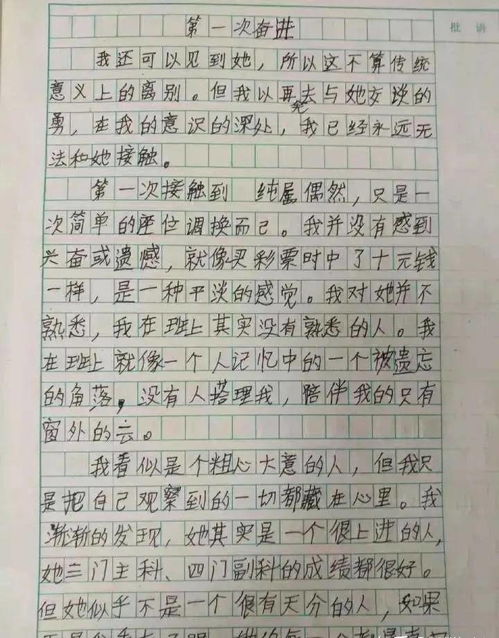 批语
第一次奋进
我还可以见到她，所以这不算传统
意义上的离别。但我以再去与她交谈的
勇，在我的意识的深处，我已经永远无
法和她接触。
第一次接触到 纯属偶然，只是一
次简单的座位调换而已。我并没有感到
兴奋或遗憾，就像买彩票时中了十元钱
一样，是一种平淡的感觉。我对她并不
熟悉，我在班上其实没有熟悉的人。我
在班上就像一个人记忆中的一个被遗忘
的角落，没有人搭理我，陪伴我的只有
窗外的云。
我看似是个粗心大意的人，但我只
是把自己观察到的一切都藏在心里。我
渐渐的发现，她其实是一个很上进的人，
她三门主科、四门副科的成绩都很好。
但她似乎不是一个很有天分的人，如果